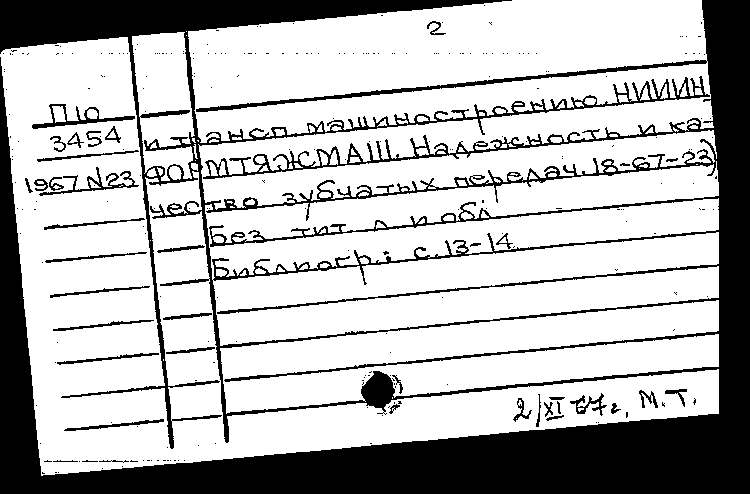 2
П10
3454 и трансп. машиностроению. НИИИН
1967 N23 ФОРМТЯЖМАШ. Надежность и ка-
чество зубчатых передач. 18-67-23)
Без тит. л и обл.
Библиогр.: с. 13-14
2/XI 67г. М.Т.